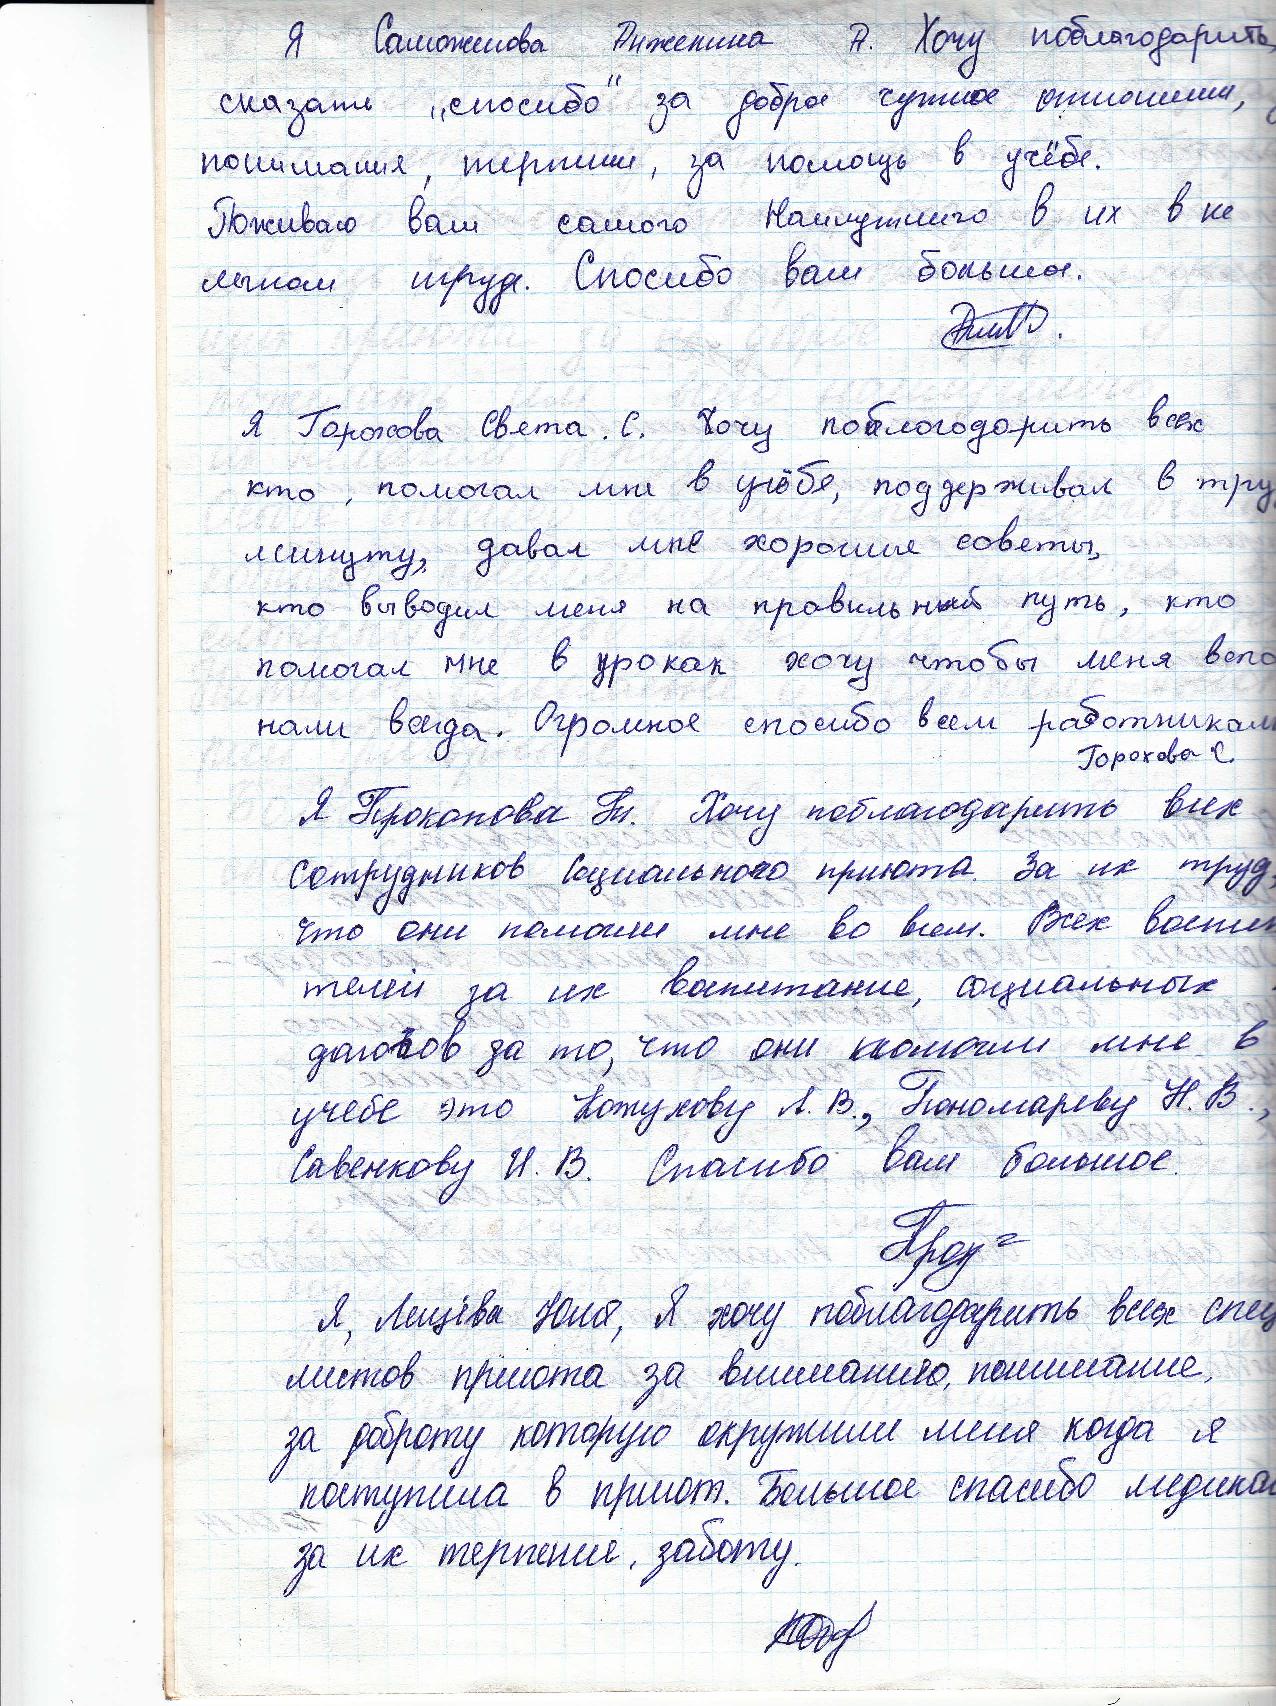 Я Саможенова Анжелина А. Хочу поблагодарить,
сказать „спосибо" за доброе чуткое отношении,
понимания, терпении, за помощь в учёбе.
Поживаю вам самого Наилутшиго в их в не
лёгком труде. Спосибо вам большое.
Я Горохова Света. С. Хочу поблогодорить всех
кто, помогал мне в учёбе, поддерживал в тру
минуту, давал мне хорошие советы,
кто выводил меня на провильный путь, кто
помогал мне в уроках хочу чтобы меня вспо
нали всегда. Огромное спосибо всем работникам
Горохова С.
Я Прокопова Тт. Хочу поблагодарить всех
сотрудников Социального приюта. За их труд,
что они помогли мне во всем. Всех воспит
телей за их воспитание, социальных
дагогов за то, что они помогли мне в
учебе это Кожухову Л.В., Пономареву Н.В.,
Савенкову И.В. Спасибо вам большое.
Я, Лещёва Юля, Я хочу поблагодарить всех спец
листов приюта за вниманию, понимание,
за доброту которую окружили меня когда я
поступила в приют. Большое спасибо медикам
за их терпение, заботу.